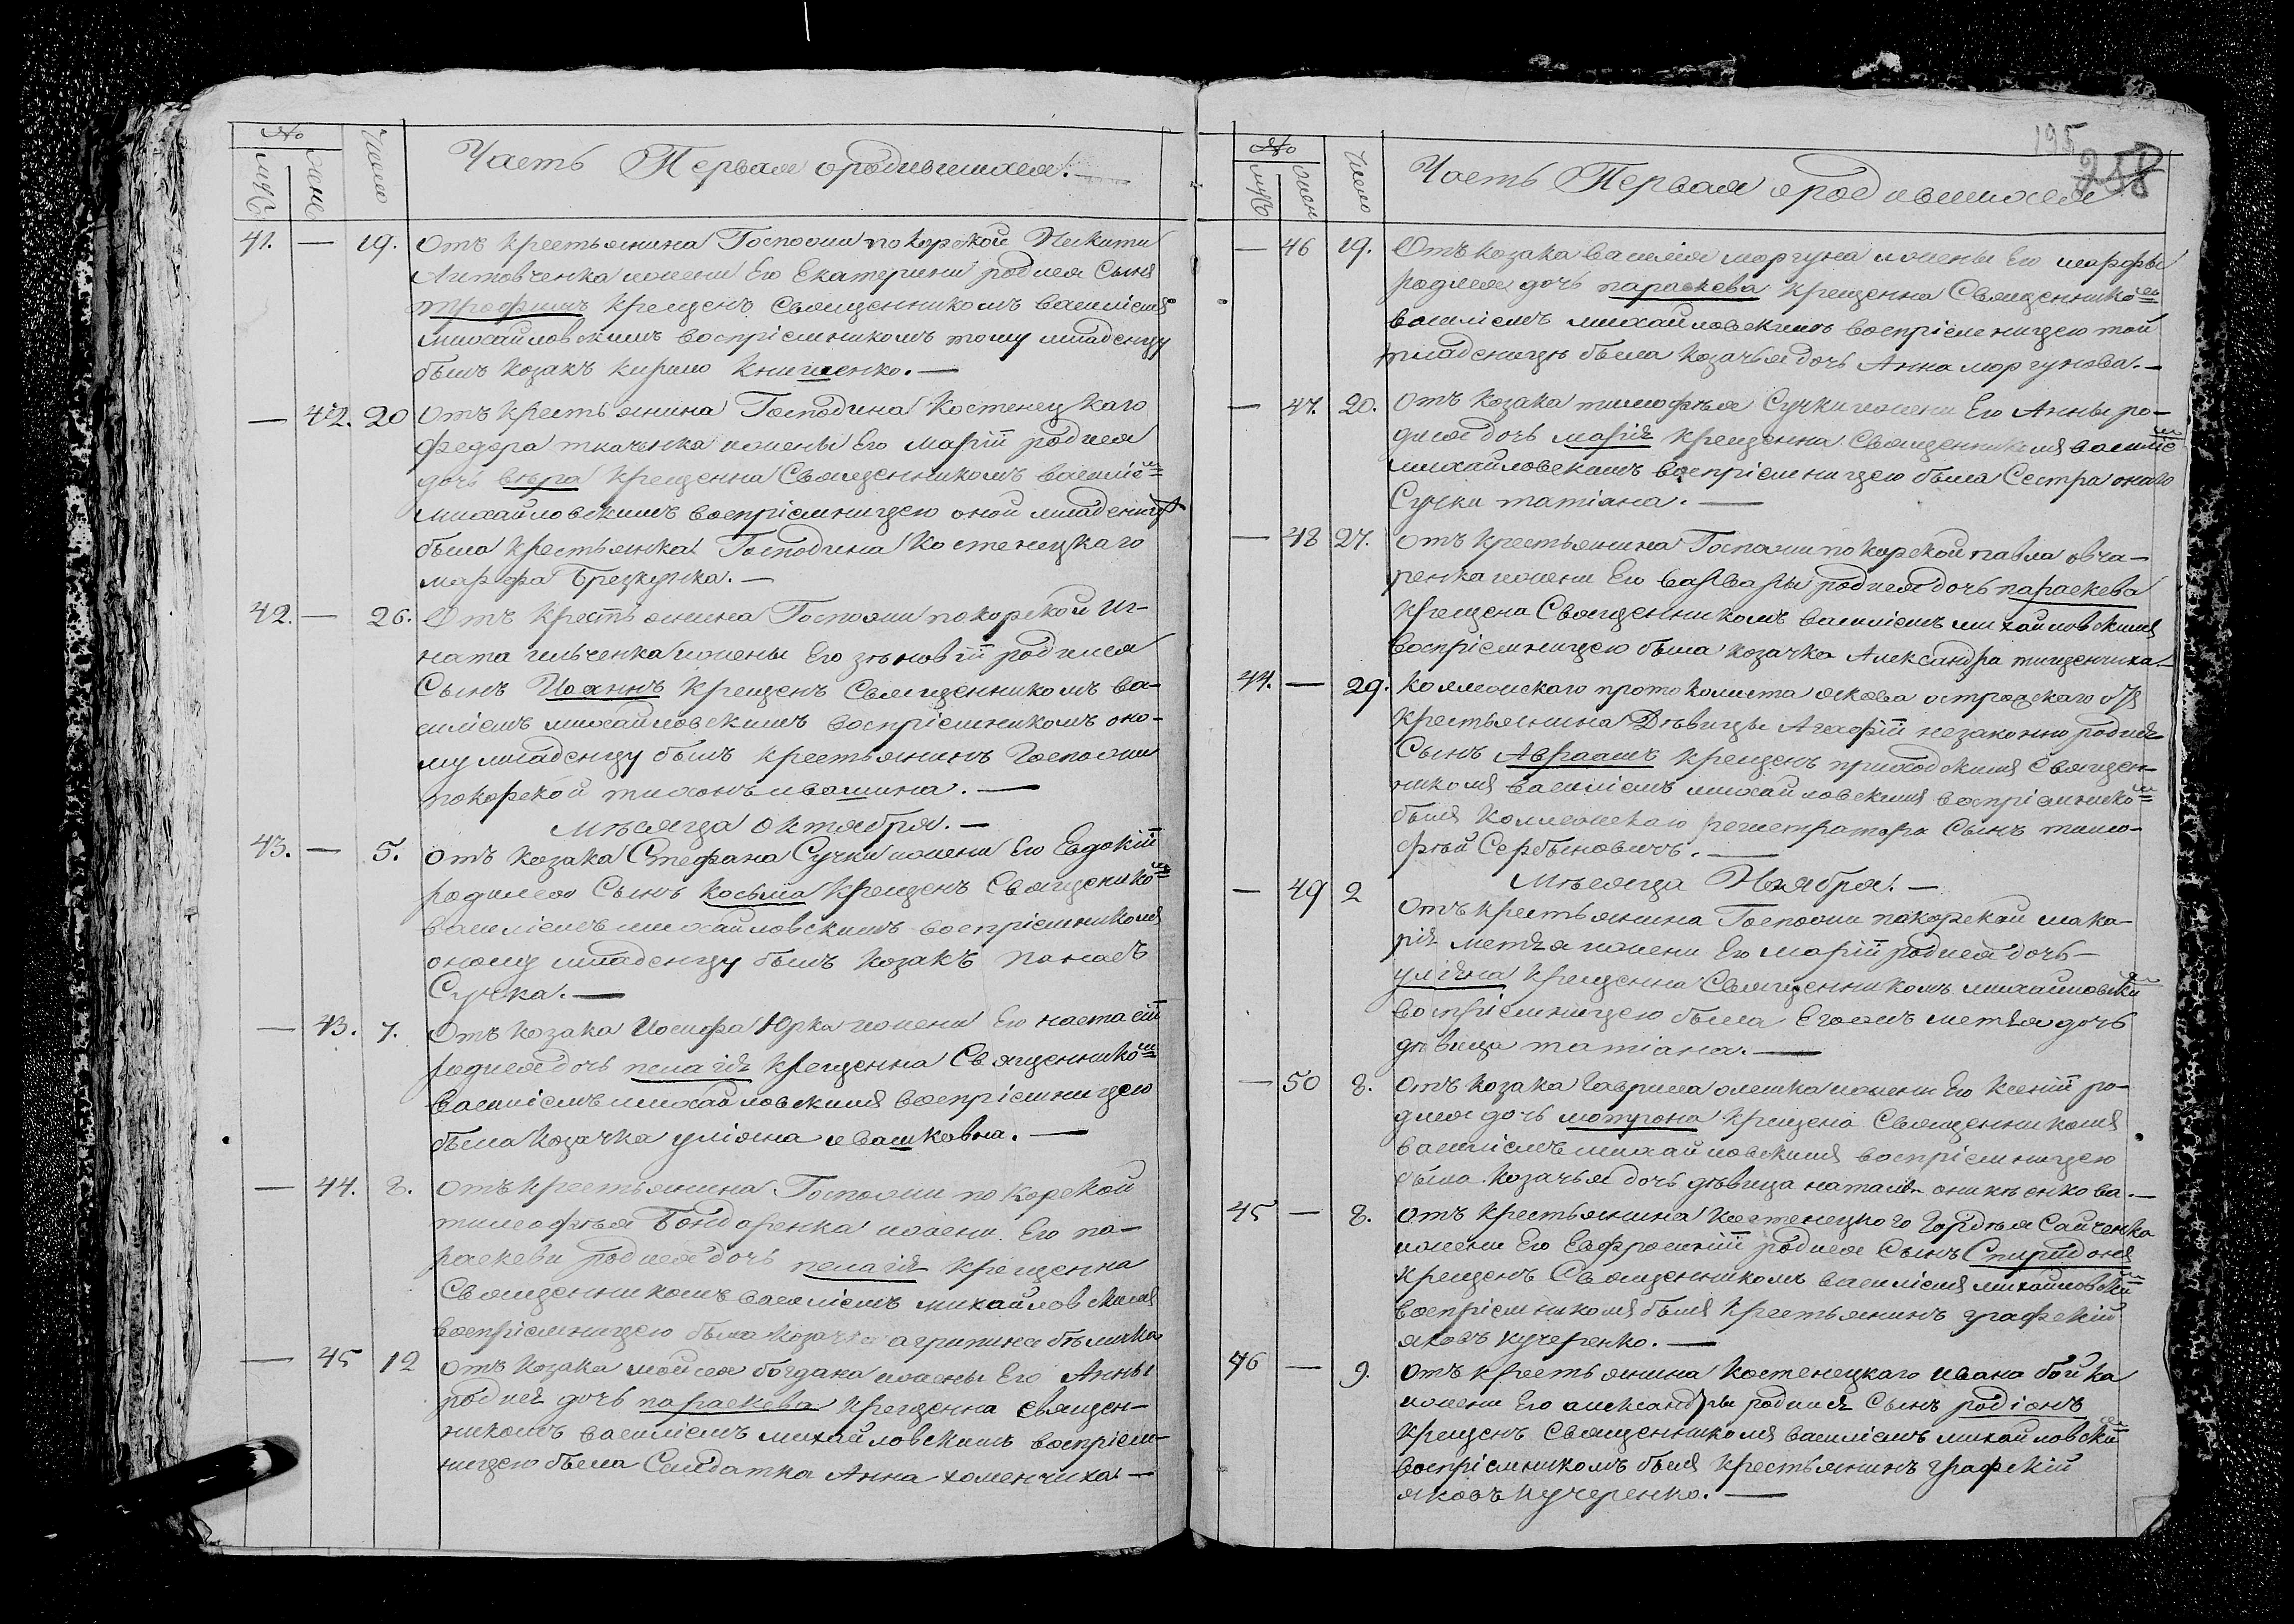 №
муж.
жен.
Число
Часть Первая о родившихся.
41. — 19. Отъ крестьянина Госпожи покорской Никити
Литовченка и жени Его Екатерини родился Сынъ
Трофимъ крещенъ Священникомъ василіемъ
михайловскимъ воспріемникомъ тому младенцу
былъ козакъ кирило книшенко. —
— 42. 20 Отъ крестьянина Господина костенецкаго
федора ткаченка и жены Его маріи родися
дочь вѣра крещенна Священникомъ василіе=м
михайловскимъ воспріемницею оной младеницѣ
была крестьянка Господина костенецкаго
марфа
42. — 26. Отъ крестьянина Госпожи покорской иг-
ната ильченка и жены Его зѣновіи родился
Сынъ Иоаннъ крещенъ Священникомъ ва-
силіемъ михайловскимъ воспріемникомъ оно-
му младенцу былъ крестьянинъ Госпожи
покорской тихонъ ивашина. —
Мѣсяца октября. —
43. — 5. Отъ козака Стефана Сучки и жени Его Евдокіи
родился Сынъ косьма крещенъ Священико=м
василіемъ михайловскимъ воспріемникомъ
оному младенцу былъ козакъ панасъ
Сучка. —
— 43. 7. Отъ козака Иосифа Юрка и жени Его настасіи
родися дочь пелагія крещенна Священнико=м
василіемъ михайловскимъ воспріемницею
была козачка уліяна ивашковна. —
— 44. 8. Отъ крестьянина Госпожи покорской
тимофѣя Бондаренка и жени Его па-
раскеви родися дочь пелагія крещенна
Священникомъ василіемъ михайловскимъ
воспріемницею была козачка агрипина
— 45 12 Отъ козака мойсея богдана и жены Его Анны
родися дочь параскева крещенна священ-
никомъ василіемъ михайловскимъ воспріем-
ницею была Салдатка Анна хоменчиха —
195
258
№
муж.
жен
Число
Часть Первая о родившихся
— 46 19. Отъ козака василія моргуна и жены Его марфы
родися дочь параскева крещенна Священнико=мъ
василіемъ михайловскимъ воспріемницею той
младеницѣ была козачья дочь Анна моргунова. —
— 47. 20. Отъ козака тимофѣя Сучки и жени Его Анны ро-
дися дочь марія крещенна Священникомъ василіе=м
михайловскимъ воспріемницею была Сестра онаго
Сучки татіана. —
— 48 27. Отъ крестьянина Госпожи покорской павла овча-
ренка и жени Его варвары родися дочь параскева
крещена Священникомъ василіемъ михайловскимъ
воспріемницею была козачка Александра тищенчиха —
44. — 29. коллежскаго протоколиста якова острожскаго отъ
крестьянина Дѣвицы Агафіи незаконно родися
Сынъ Авраамъ крещенъ приходскимъ Священ-
никомъ василіемъ михайловскимъ воспріемнико=м
былъ коллежскаго регистратора Сынъ тимо-
фѣй Сербиновичъ. —
Мѣсяца Ноября. —
— 49 2 Отъ крестьянина Госпожи покорской мака-
рія метѣя и жени Его маріи родися дочь —
уліяна крещенна Священникомъ михайловски=м
воспріемницею была Егожъ метѣя дочь
дѣвица татіана. —
— 50 8. Отъ козака Гаврила олешка и жени Его ксеніи ро-
дися дочь мотрона крещена Священникомъ
василіемъ михайловскимъ воспріемницею
была козачья дочь дѣвица наталія оникѣенкова. —
45 — 8. Отъ крестьянина костенецкого Гордѣя Сайченка
и жени Его Евфросиніи родися Сынъ Спиридонъ
крещенъ Священникомъ василіемъ михайловски=м
воспріемникомъ былъ крестьянинъ графскій
яковъ кучеренко. —
46 — 9. Отъ крестьянина костенецкаго ивана бойка
и жени Его александры родился Сынъ родіонъ
крещенъ Священникомъ василіемъ михайловски=м
воспріемникомъ былъ крестьянинъ графскій
яковъ кучеренко. —